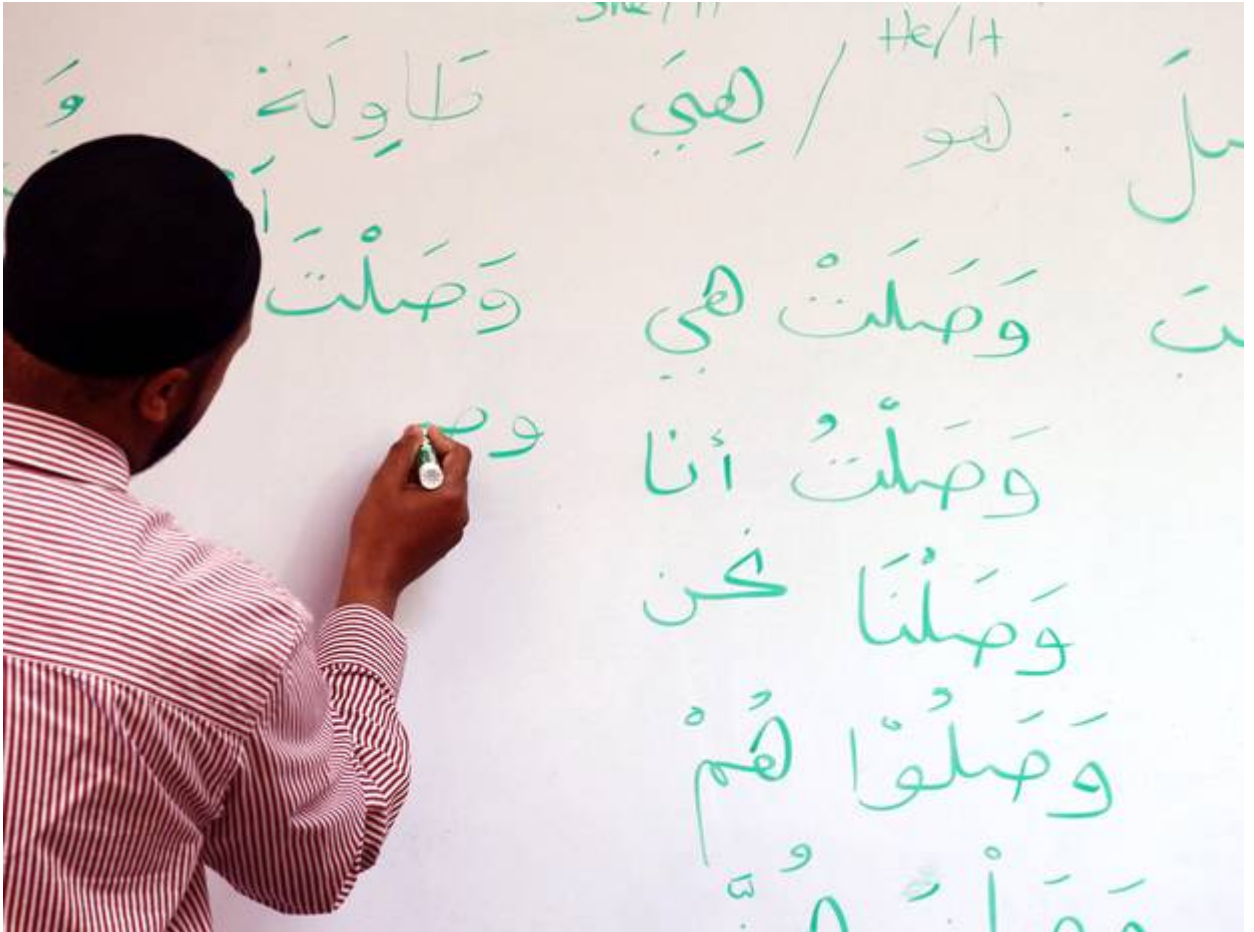 She/It He/It
: هو / هِيَ طَاوِلَة وَ
وَصَلَتْ هي وَصَلْتَ
وَصَلْتُ أنا وصـ
وَصَلْنَا نحن
وَصَلُوْا هُمْ